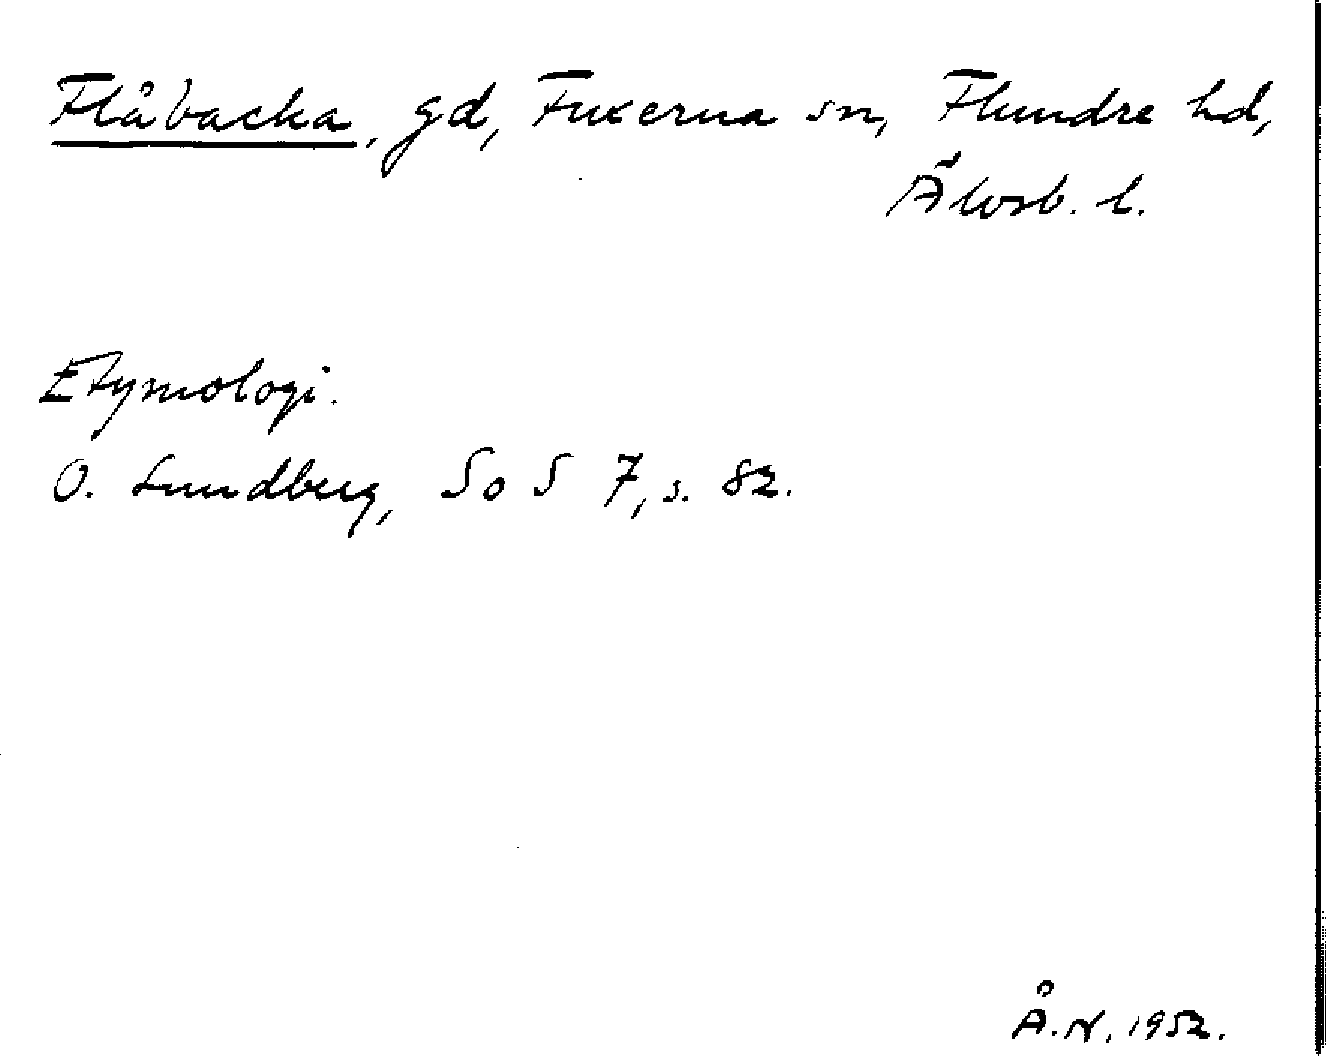 Flåbacka, gd, Fuxerna sn, Flundre hd,
Älvsb. l.
Etymologi.
O. Lundberg, SoS 7, s. 82.
Å. N. 1952.